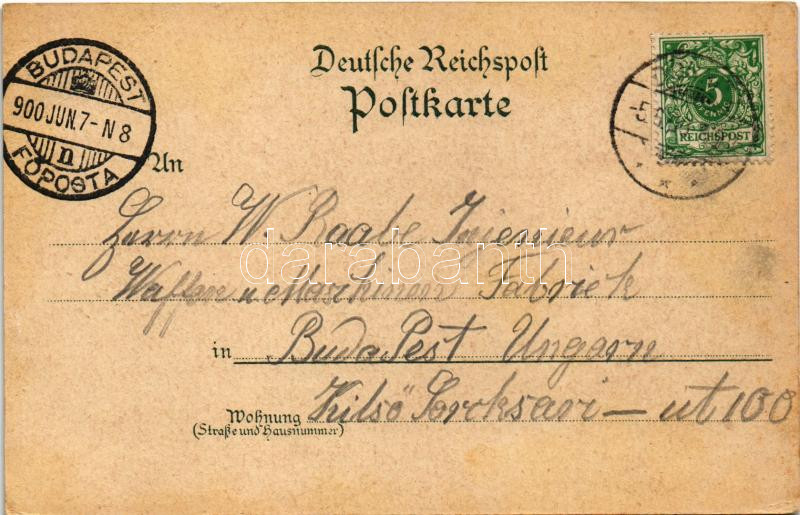 Deutsche Reichspost
Postkarte
BUDAPEST
900 JUN. 7 - N 8
n
FŐPOSTA
5
REICHSPOST
An
Herrn W. Raabe Ingenieur
Waffen u Marhinen Fabriek
in BudaPest Ungarn
Wohnung Külsö Soroksari — ut 100
(Straße und Hausnummer)
darabanth